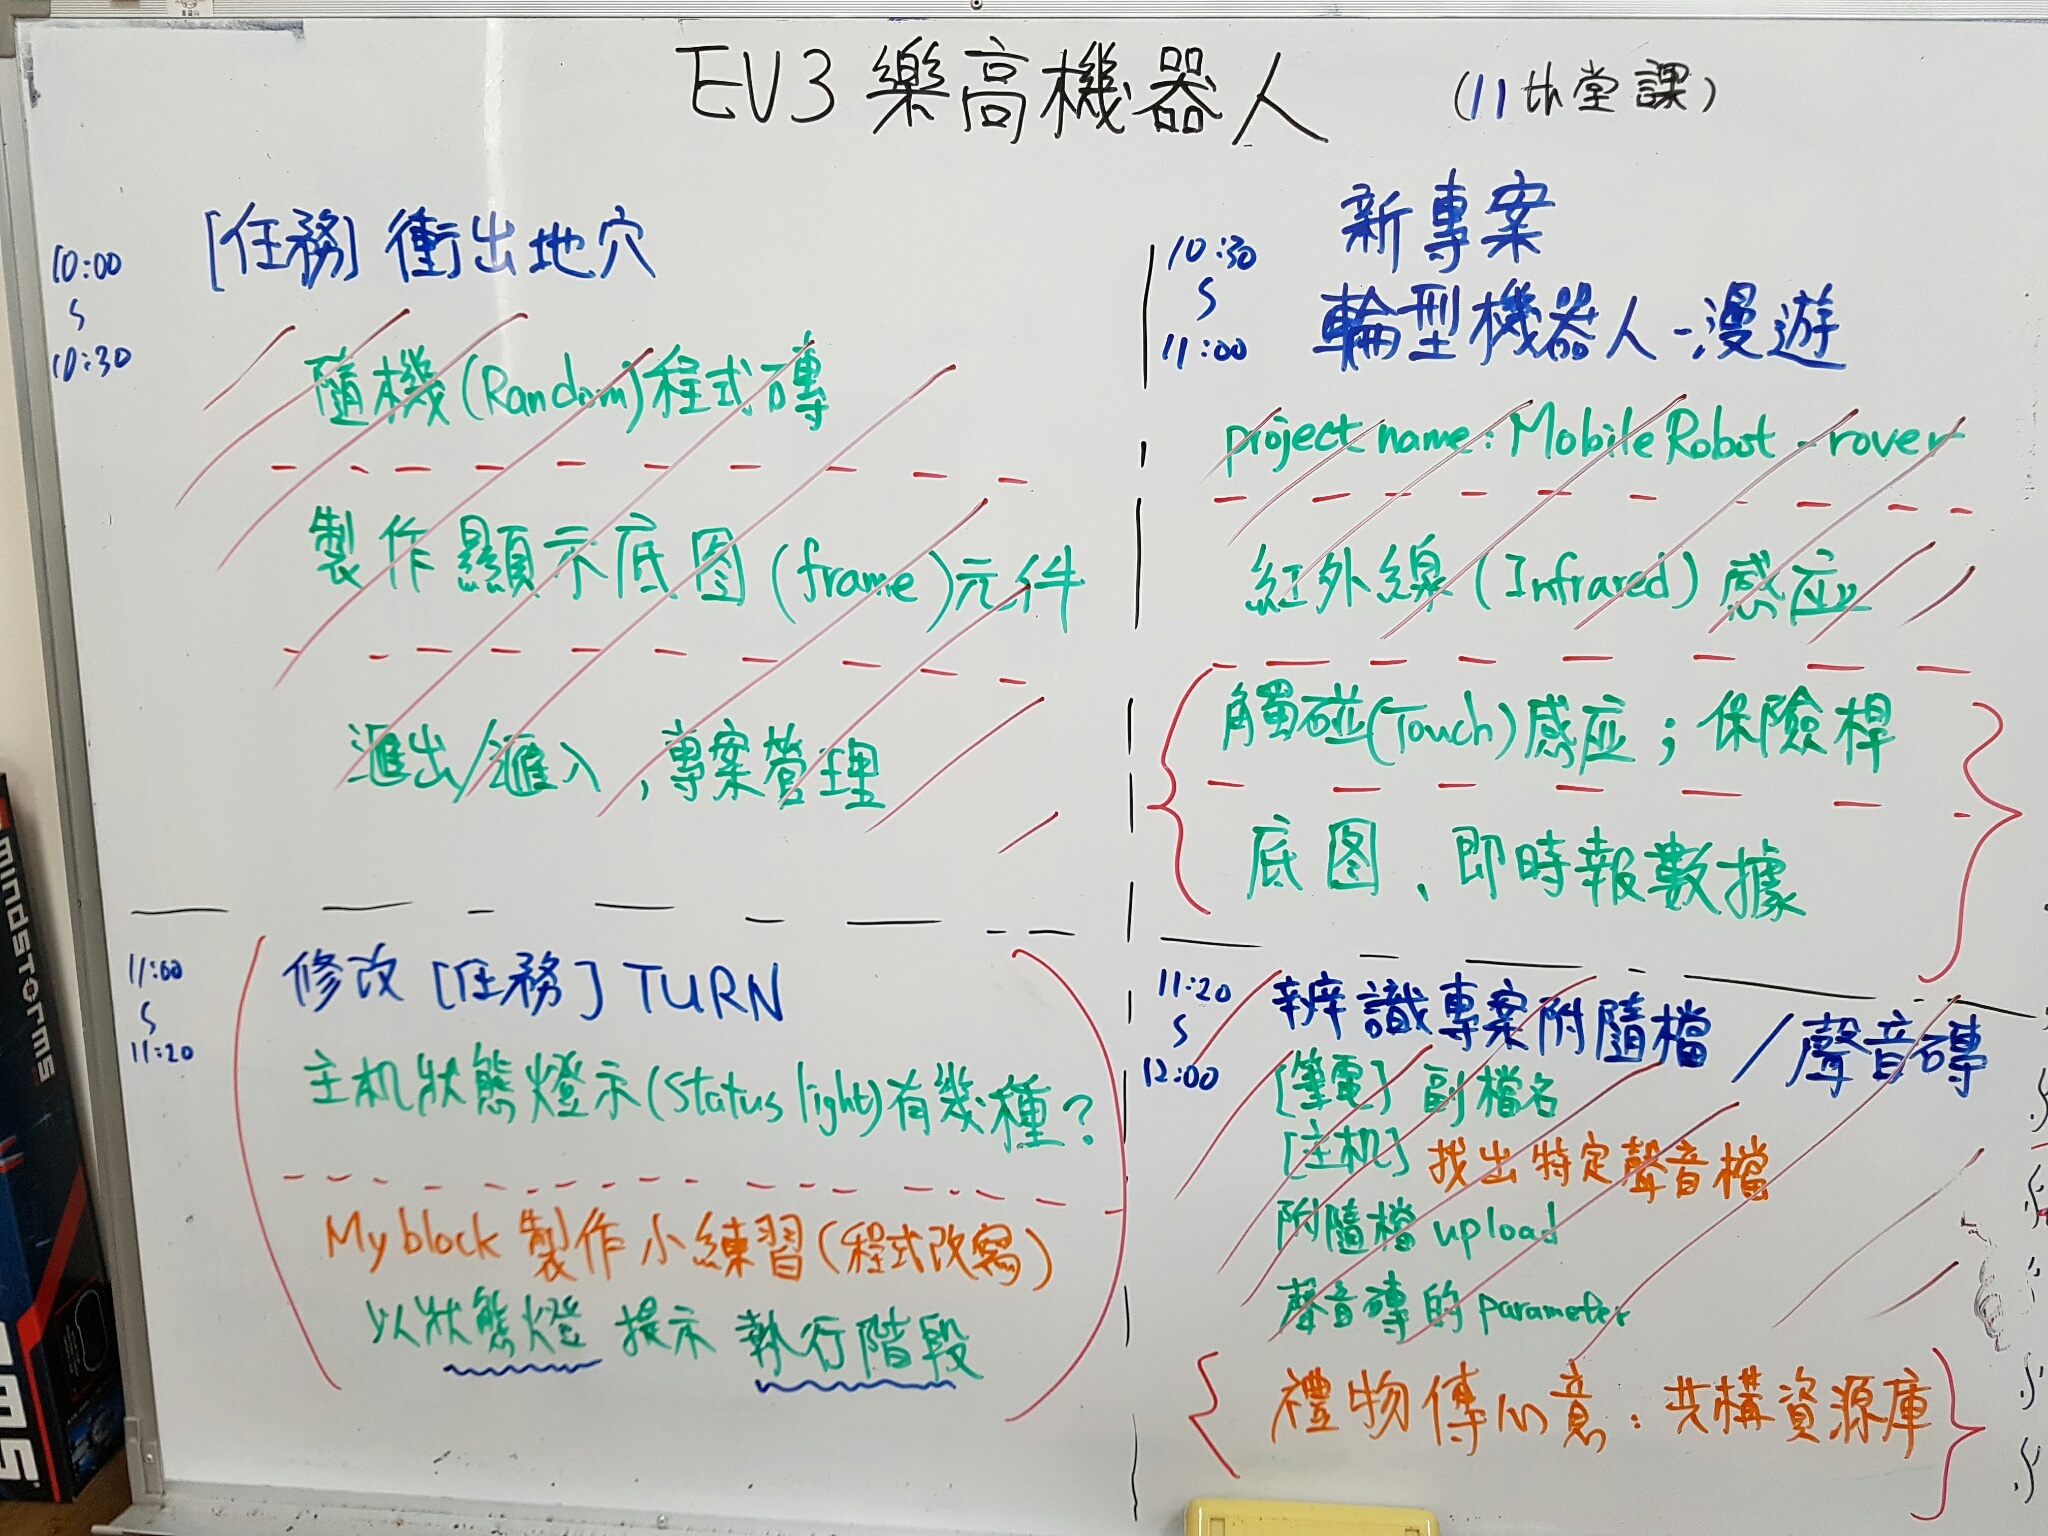 EV3 樂高機器人 (11th堂課)
10:00
10:30
[任務] 衝出地穴
隨機(Random)程式磚
製作顯示底图(frame)元件
滙出/滙入,專案管理
10:30
11:00
新專案
輪型機器人-漫遊
project name: Mobile Robot - rover
紅外線(Infrared)感应
觸碰(Touch)感应;保險桿
底图、即時報數據
11:00
11:20
修改[任務] TURN
主机狀態燈示(Status light)有幾種?
My block 製作小練習(程式改寫)
以狀態燈 提示 執行階段
11:20
12:00
辨識專案附隨檔 / 聲音磚
[筆電] 副檔名
[主机] 找出特定聲音檔
附隨檔 upload
聲音磚的 parameter
禮物傳心意:共構資源庫
mindstorms